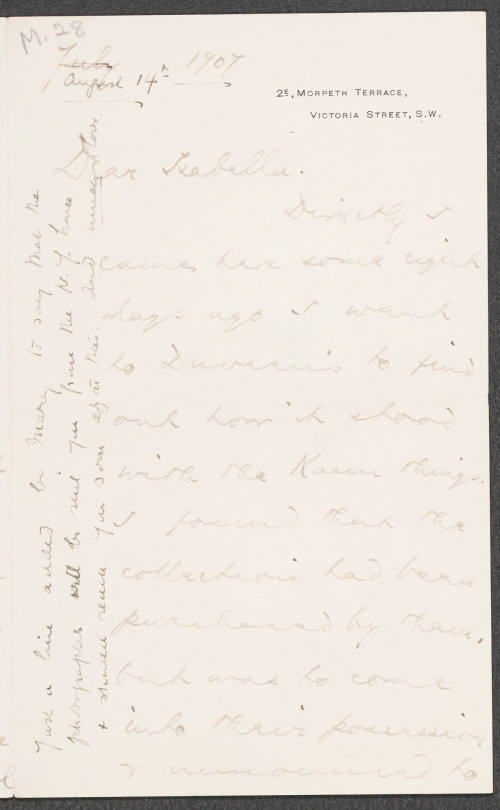 M. 28
July
August 14th 1907
2E, MORPETH TERRACE,
VICTORIA STREET, S.W.
Dear Isabella.
Directly I
came here some eight
days ago I went
to Duveen's to find
out how it stood
with the Kann things.
I found that the
collection had been
purchased by them,
but was to come
into their possession
& announced to
Just a line added by Mary to say that the
photographs will be sent you from the N. Y. house
& should reach you soon after this. And